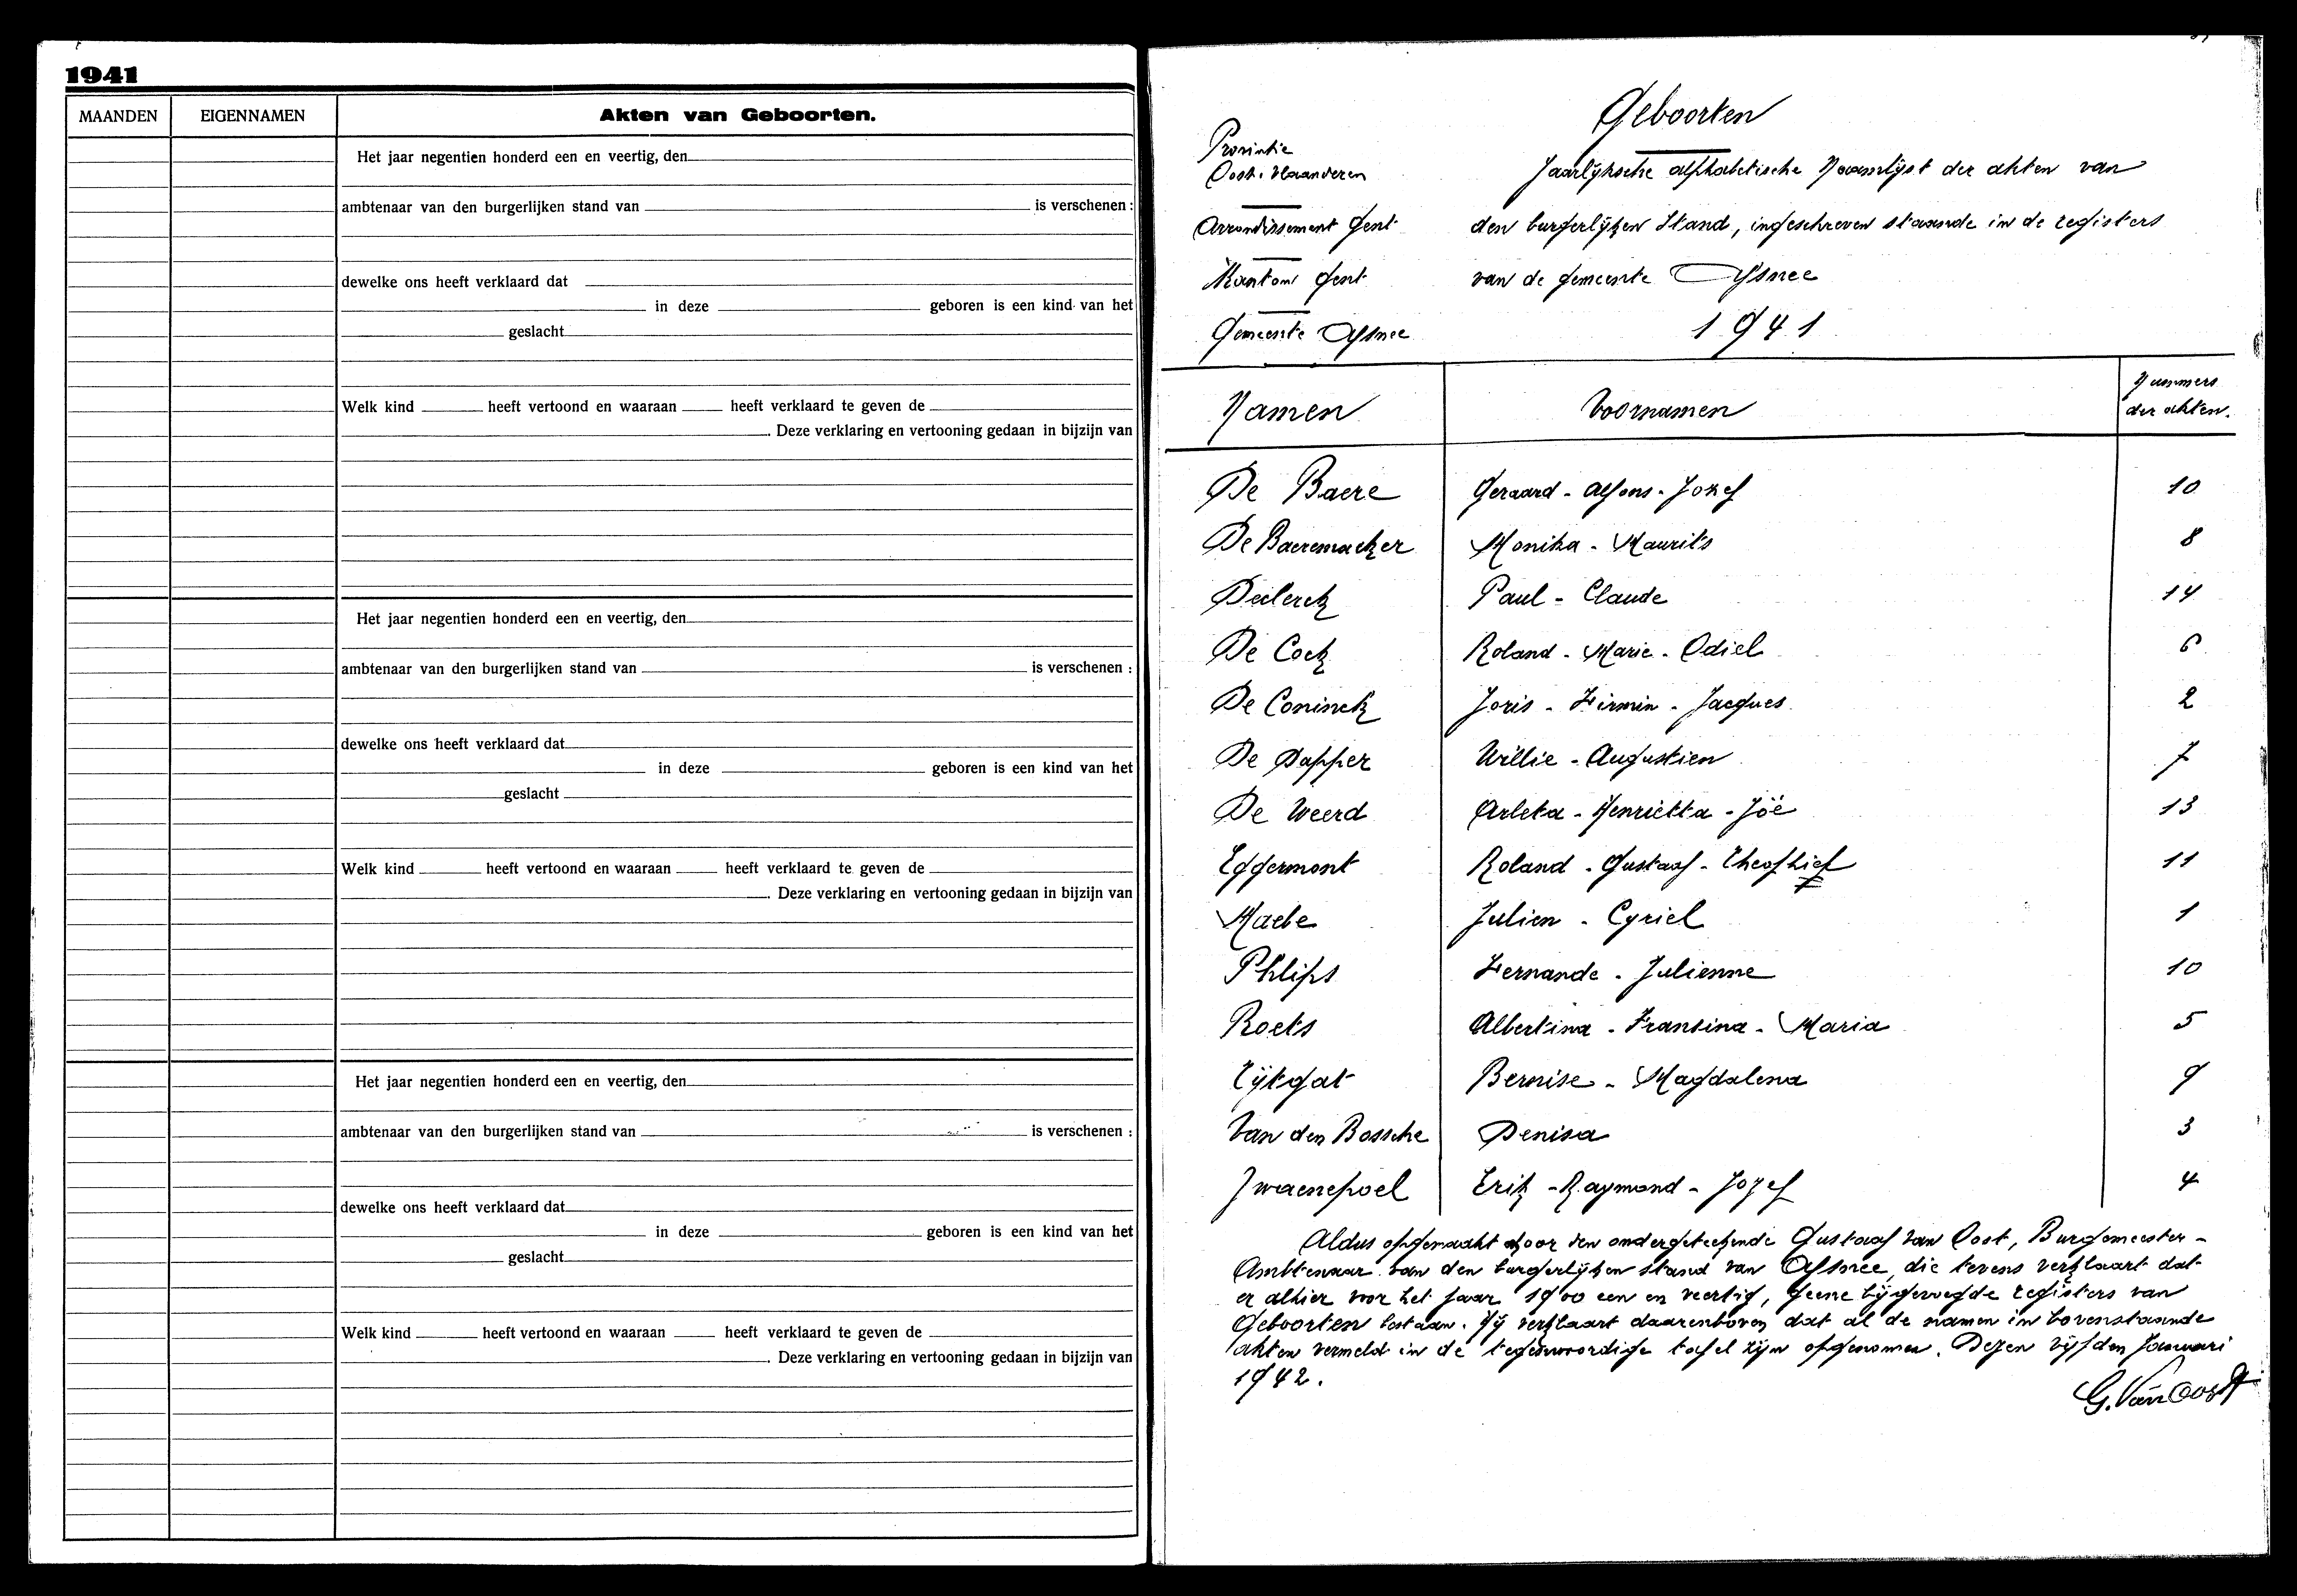 1941
MAANDEN EIGENNAMEN Akten van Geboorten.
Het jaar negentien honderd een en veertig, den
ambtenaar van den burgerlijken stand van is verschenen :
dewelke ons heeft verklaard dat
in deze geboren is een kind van het
geslacht
Welk kind heeft vertoond en waaraan heeft verklaard te geven de
Deze verklaring en vertooning gedaan in bijzijn van
Het jaar negentien honderd een en veertig, den
ambtenaar van den burgerlijken stand van is verschenen :
dewelke ons heeft verklaard dat
in deze geboren is een kind van het
geslacht
Welk kind heeft vertoond en waaraan heeft verklaard te geven de
Deze verklaring en vertooning gedaan in bijzijn van
Het jaar negentien honderd een en veertig, den
ambtenaar van den burgerlijken stand van is verschenen :
dewelke ons heeft verklaard dat
in deze geboren is een kind van het
geslacht
Welk kind heeft vertoond en waaraan heeft verklaard te geven de
Deze verklaring en vertooning gedaan in bijzijn van
Geboorten
Provintie
Oost-Vlaanderen
Arrondissement Gent
Kanton Gent
Gemeente Afsnee
Jaarlijksche alphabetische Naamlijst der akten van
den burgerlijken Stand, ingeschreven staande in de registers
van de gemeente Afsnee
1941
Namen Voornamen Nummers der akten.
De Baere Geraard - Alfons - Jozef 10
De Baeremaeker Monika - Maurits 8
Declerck Paul - Claude 14
De Cock Roland - Marie - Odiel 6
De Coninck Joris - Firmin - Jacques 2
De Dapper Willie - Augustien 7
De Weerd Arleta - Henrietta - Joë 13
Eggermont Roland - Gustaaf - Theophief 11
Maebe Julien - Cyriel 1
Phlips Fernande - Julienne 10
Roets Albertina - Fransina - Maria 5
Tijtgat Bernise - Magdalena 9
Van den Bossche Denisa 3
Zwaenepoel Erik - Raymond - Jozef 4
Aldus opgemaakt door den ondergeteekende Gustaaf Van Oost, Burgemeester -
Ambtenaar van den burgerlijken stand van Afsnee, die tevens verklaart dat
er alhier voor het jaar 1900 een en veertig, geene bijgevoegde registers van
Geboorten bestaan. Hij verklaart daarenboven dat al de namen in bovenstaande
akten vermeld in de tegenwoordige tafel zijn opgenomen. Dezen vijfden Januari
1942.
G. Van Oost